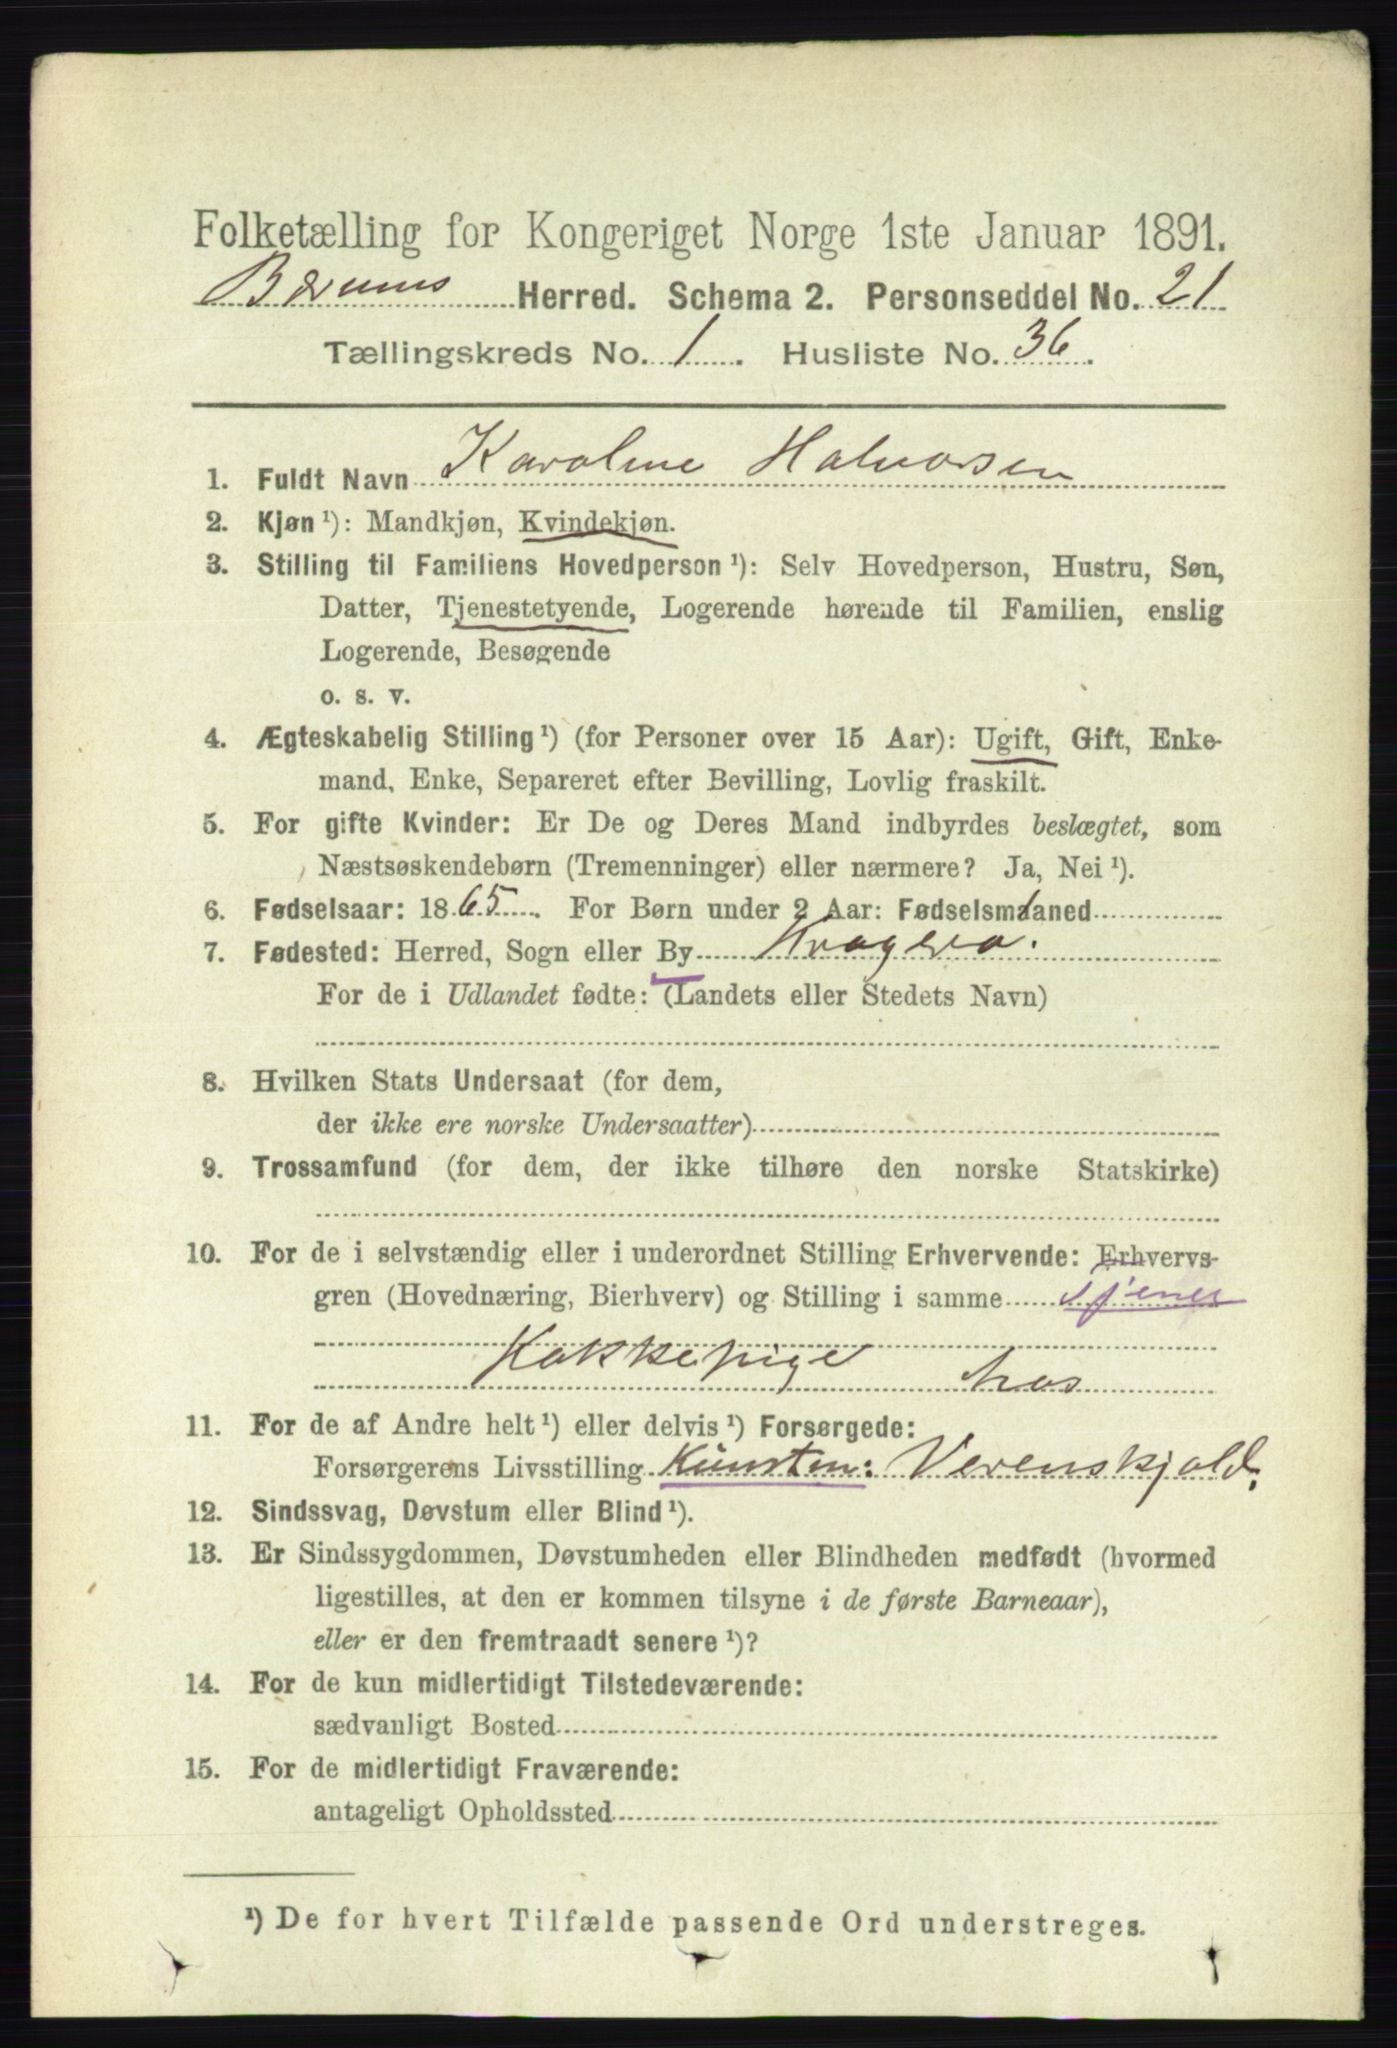 Folketælling for Kongeriget Norge 1ste Januar 1891.
Bærums Herred. Schema 2. Personseddel No. 21
Tællingskreds No. 1. Husliste No. 36.
1. Fuldt Navn Karoline Halvorsen
2. Kjøn ¹): Mandkjøn, Kvindekjøn.
3. Stilling til Familiens Hovedperson ¹): Selv Hovedperson, Hustru, Søn,
Datter, Tjenestetyende, Logerende hørende til Familien, enslig
Logerende, Besøgende
o. s. v.
4. Ægteskabelig Stilling ¹) (for Personer over 15 Aar): Ugift, Gift, Enke-
mand, Enke, Separeret efter Bevilling, Lovlig fraskilt.
5. For gifte Kvinder: Er De og Deres Mand indbyrdes beslægtet, som
Næstsøskendebørn (Tremenninger) eller nærmere? Ja, Nei ¹).
6. Fødselsaar: 1865. For Børn under 2 Aar: Fødselsmaaned
7. Fødested: Herred, Sogn eller By Kragerø.
For de i Udlandet fødte: (Landets eller Stedets Navn)
8. Hvilken Stats Undersaat (for dem,
der ikke ere norske Undersaatter)
9. Trossamfund (for dem, der ikke tilhøre den norske Statskirke)
10. For de i selvstændig eller i underordnet Stilling Erhvervende: Erhvervs-
gren (Hovednæring, Bierhverv) og Stilling i samme tjener
Kokkepige hos
11. For de af Andre helt ¹) eller delvis ¹) Forsørgede:
Forsørgerens Livsstilling Kunstm: Verenskjold,
12. Sindssvag, Døvstum eller Blind ¹).
13. Er Sindssygdommen, Døvstumheden eller Blindheden medfødt (hvormed
ligestilles, at den er kommen tilsyne i de første Barneaar),
eller er den fremtraadt senere ¹)?
14. For de kun midlertidigt Tilstedeværende:
sædvanligt Bosted
15. For de midlertidigt Fraværende:
antageligt Opholdssted
¹) De for hvert Tilfælde passende Ord understreges.